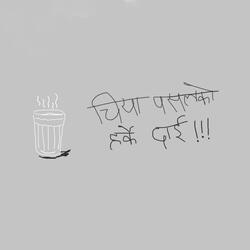 चिया पसलको
हर्के दाई !!!